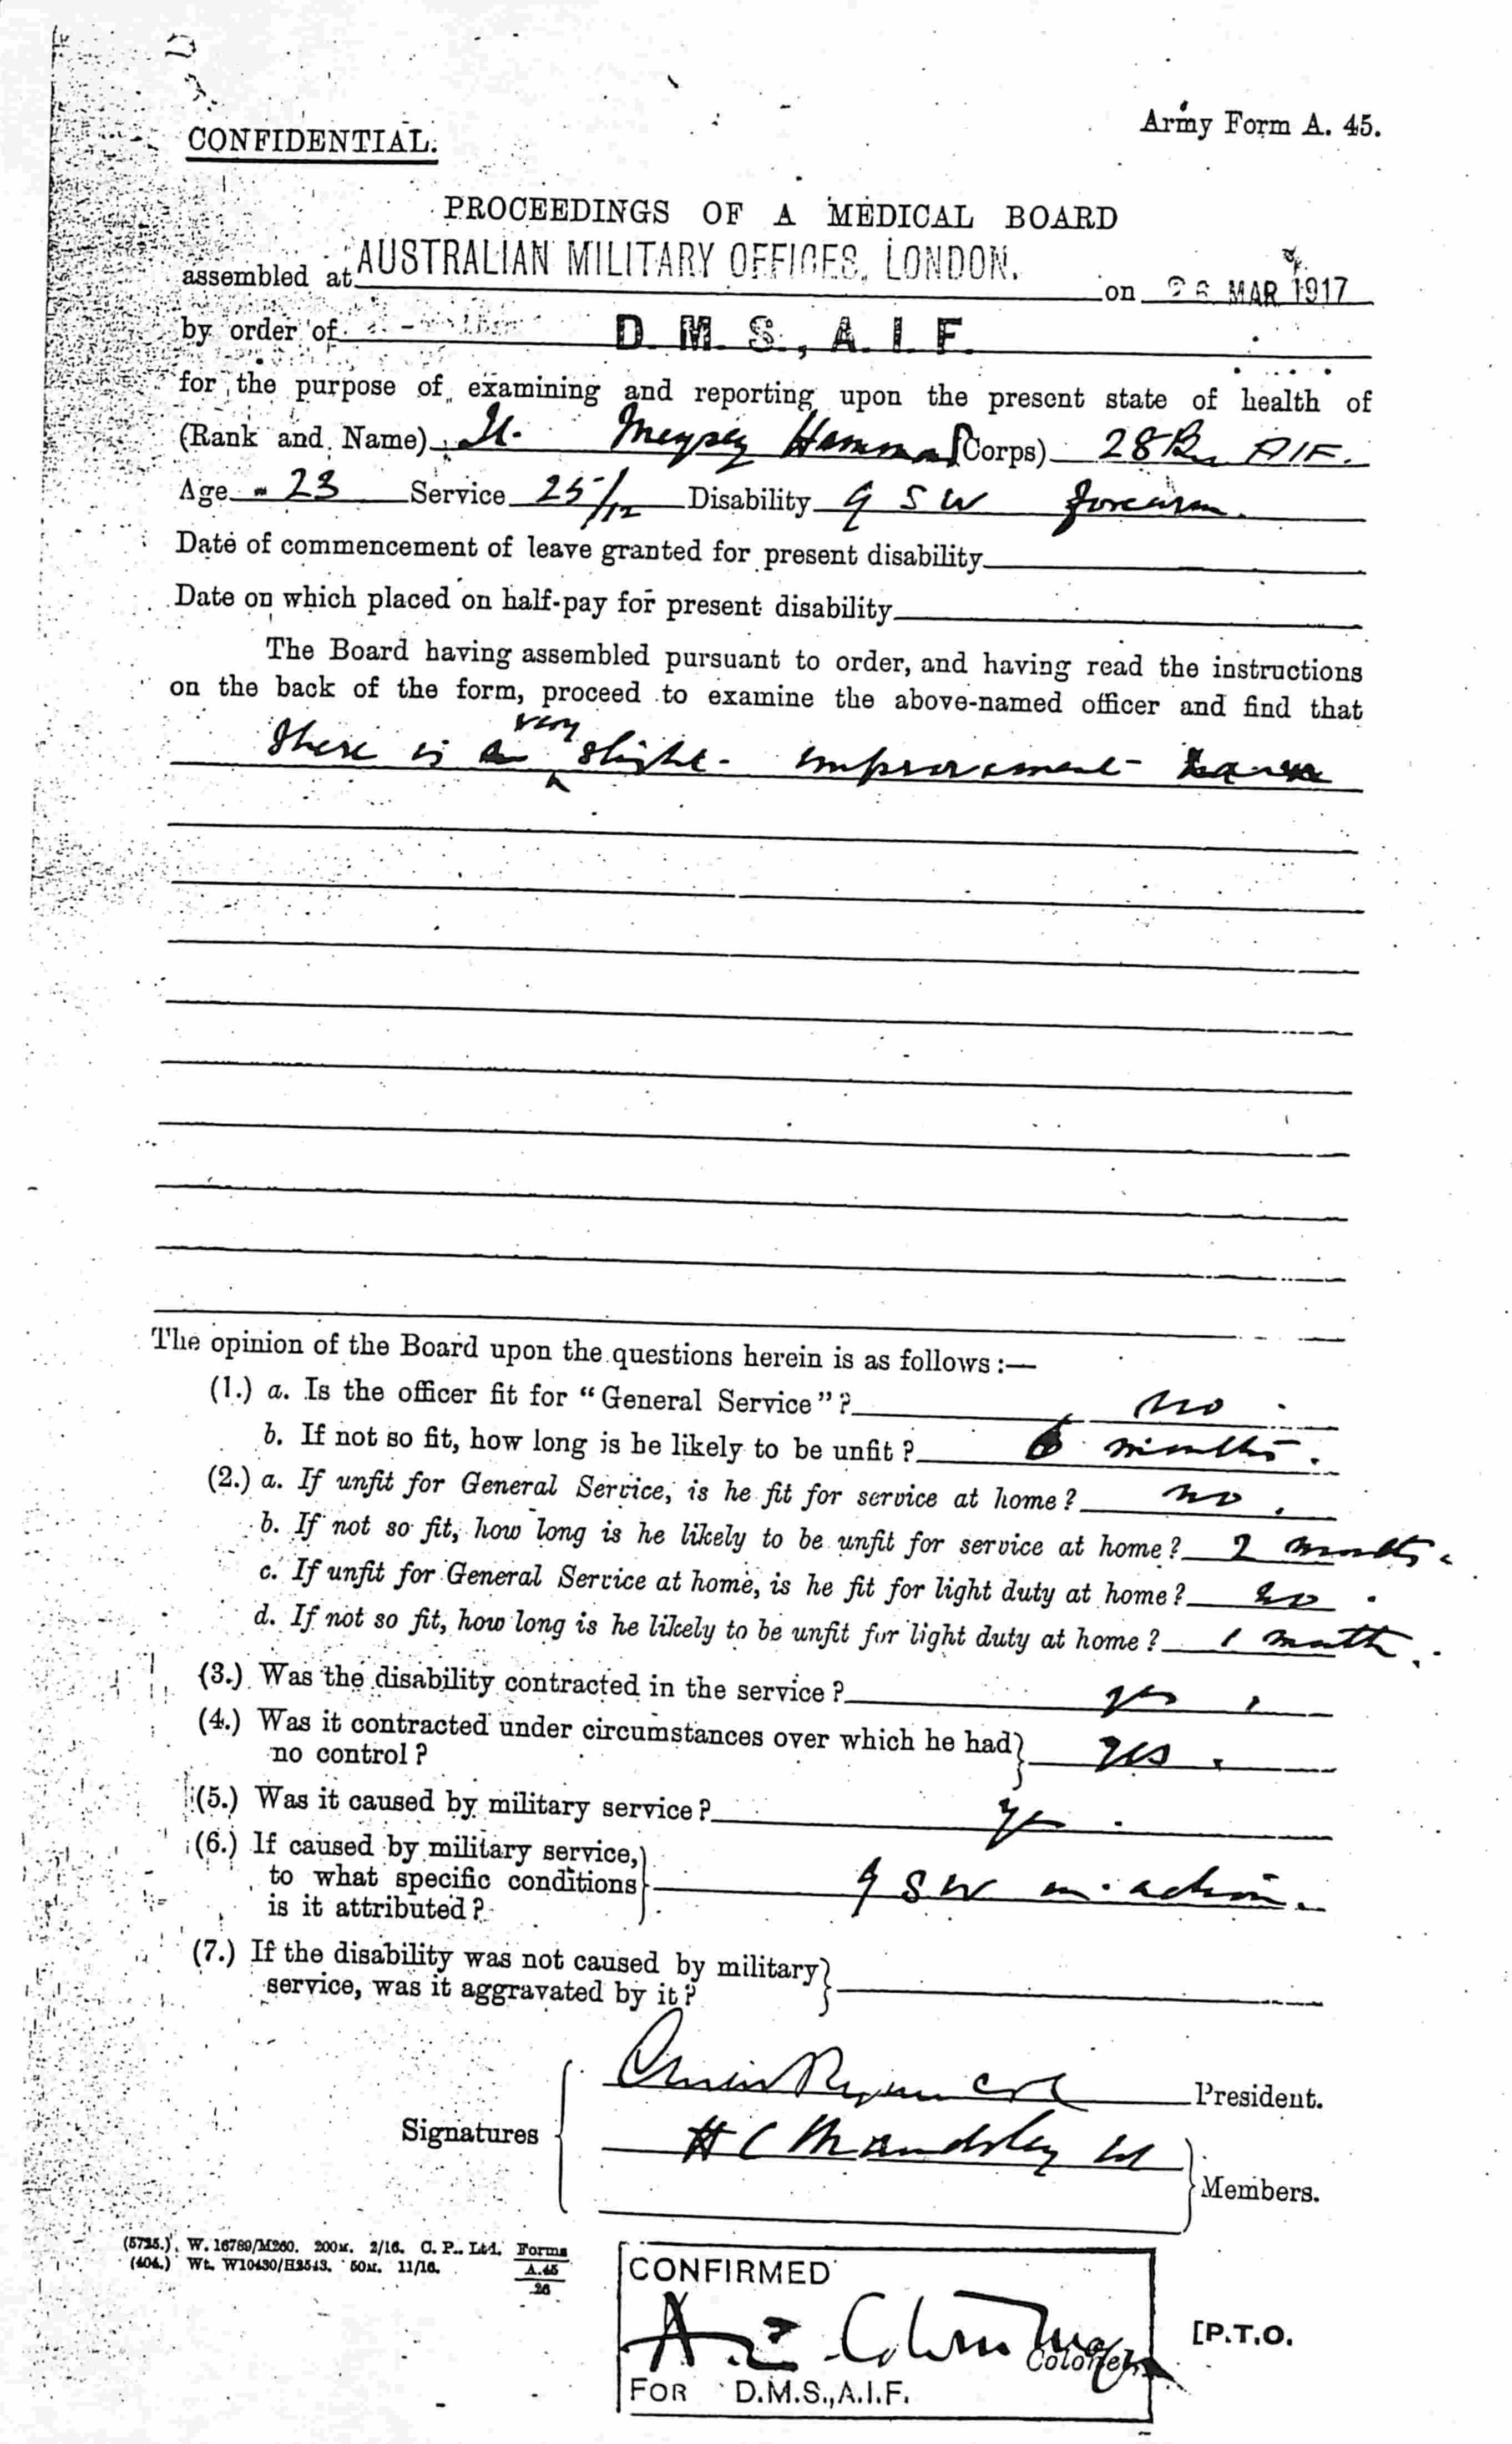 Army Form A. 45.
CONFIDENTIAL.
PROCEEDINGS OF A MEDICAL BOARD
assembled at AUSTRALIAN MILITARY OFFICES, LONDON. on 26 MAR 1917
by order of D. M. S., A. I. F.
for the purpose of examining and reporting upon the present state of health of
(Rank and Name) Lt. Meysey Hammond (Corps) 28 Bn AIF.
Age 23 Service 25/12 Disability G S W forearm.
Date of commencement of leave granted for present disability
Date on which placed on half-pay for present disability
The Board having assembled pursuant to order, and having read the instructions
on the back of the form, proceed to examine the above-named officer and find that
very
there is a slight improvement
The opinion of the Board upon the questions herein is as follows :—
(1.) a. Is the officer fit for "General Service"? no.
b. If not so fit, how long is he likely to be unfit ? 6 months.
(2.) a. If unfit for General Service, is he fit for service at home ? no.
b. If not so fit, how long is he likely to be unfit for service at home ? 2 months.
c. If unfit for General Service at home, is he fit for light duty at home ? no.
d. If not so fit, how long is he likely to be unfit for light duty at home ? 1 month.
(3.) Was the disability contracted in the service ? yes.
(4.) Was it contracted under circumstances over which he had
no control ? yes.
(5.) Was it caused by military service ? yes.
(6.) If caused by military service,
to what specific conditions G S W in action.
is it attributed ?
(7.) If the disability was not caused by military
service, was it aggravated by it ?
President.
Signatures
H C Maudsley
Members.
(5725.) W. 16789/M260. 200M. 2/16. C. P., Ltd. Forms
(404.) Wt. W10430/H2543. 50M. 11/16. A.45
26
CONFIRMED
Colonel
FOR D.M.S., A.I.F.
[P.T.O.